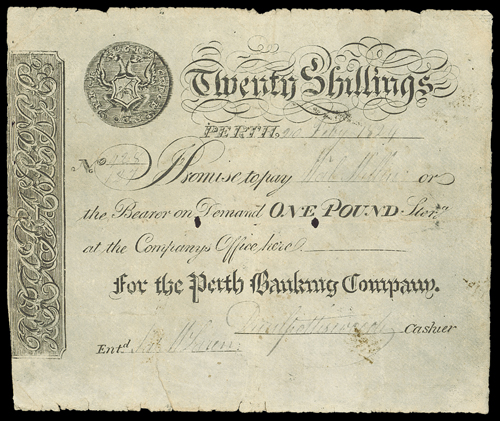 Twenty Shillings
PERTH, 20 Feby 1824
No
I Promise to pay or
the Bearer on Demand ONE POUND Sterg
at the Companys Office here
For the Perth Banking Company.
Cashier
Entd